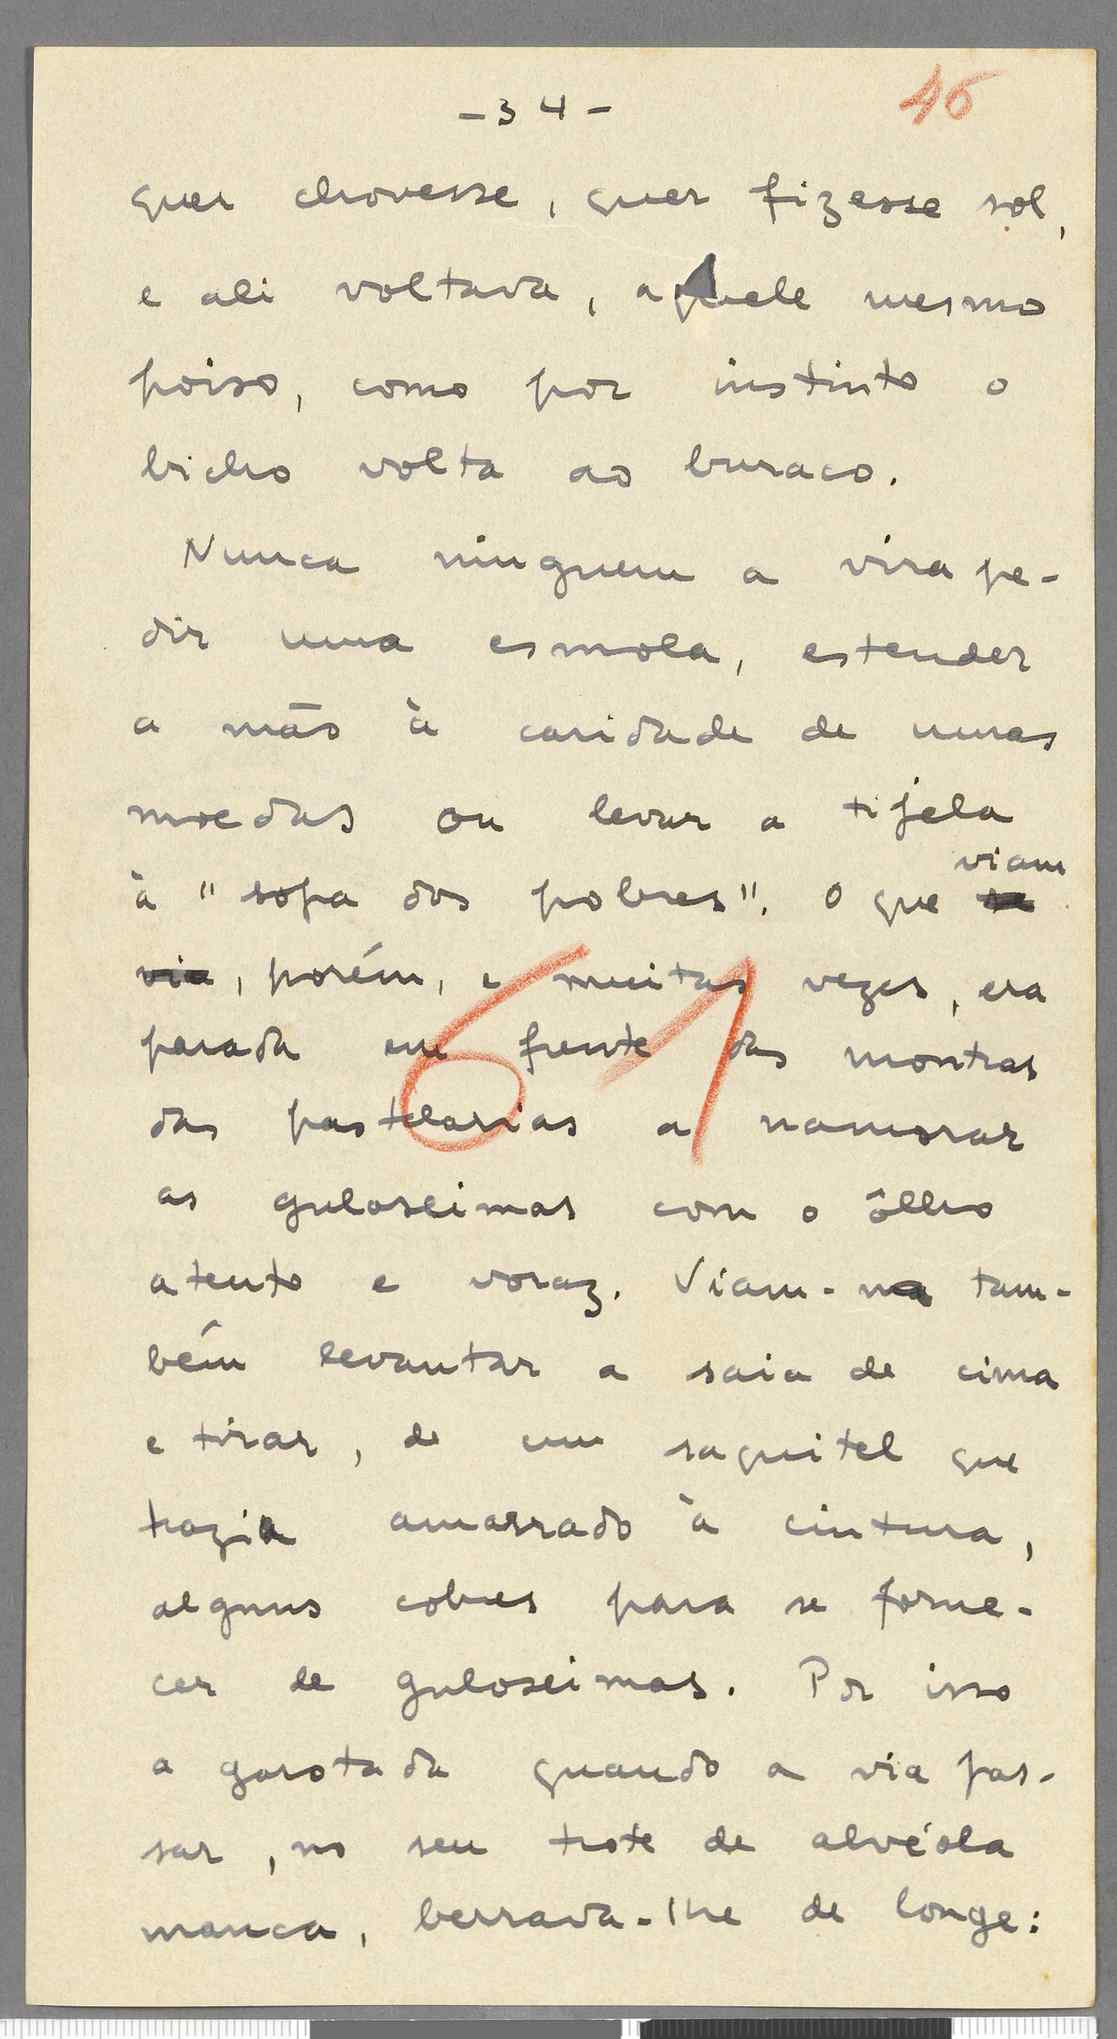 - 34 -
46
quer chovesse, quer fizesse sol,
e ali voltava, aquele mesmo
poiso, como por instinto o
bicho volta ao buraco.
Nunca ninguem a vira pe-
dir uma esmola, estender
a mão à caridade de umas
moedas ou levar a tijela
à "sopa dos pobres". O que se viam
via, porém, e muitas vezes, era
parada em frente das montras
61
das pastelarias a namorar
as guloseimas com o ôlho
atento e voraz. Viam-na tam-
bém levantar a saia de cima
e tirar, de um saquitel que
trazia amarrado à cintura,
alguns cobres para se forne-
cer de guloseimas. Por isso
a garotada quando a via pas-
sar, no seu trote de alvéola
manca, berrava-lhe de longe: